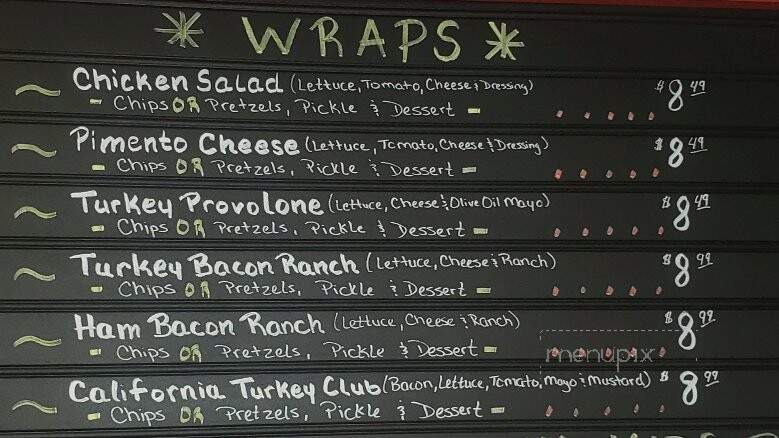 * WRAPS *
~ Chicken Salad (Lettuce, Tomato, Cheese & Dressing) $8.49
- Chips OR Pretzels, Pickle & Dessert - . . . . .
~ Pimento Cheese (Lettuce, Tomato, Cheese & Dressing) $8.49
- Chips OR Pretzels, Pickle & Dessert - . . . . .
~ Turkey Provolone (Lettuce, Cheese & Olive Oil Mayo) $8.49
- Chips OR Pretzels, Pickle & Dessert - . . . . .
~ Turkey Bacon Ranch (Lettuce, Cheese & Ranch) $8.99
- Chips OR Pretzels, Pickle & Dessert - . . . . .
~ Ham Bacon Ranch (Lettuce, Cheese & Ranch) $8.99
- Chips OR Pretzels, Pickle & Dessert - . . . . .
menupix
~ California Turkey Club (Bacon, Lettuce, Tomato, Mayo & Mustard) $8.99
- Chips OR Pretzels, Pickle & Dessert - . . . . .